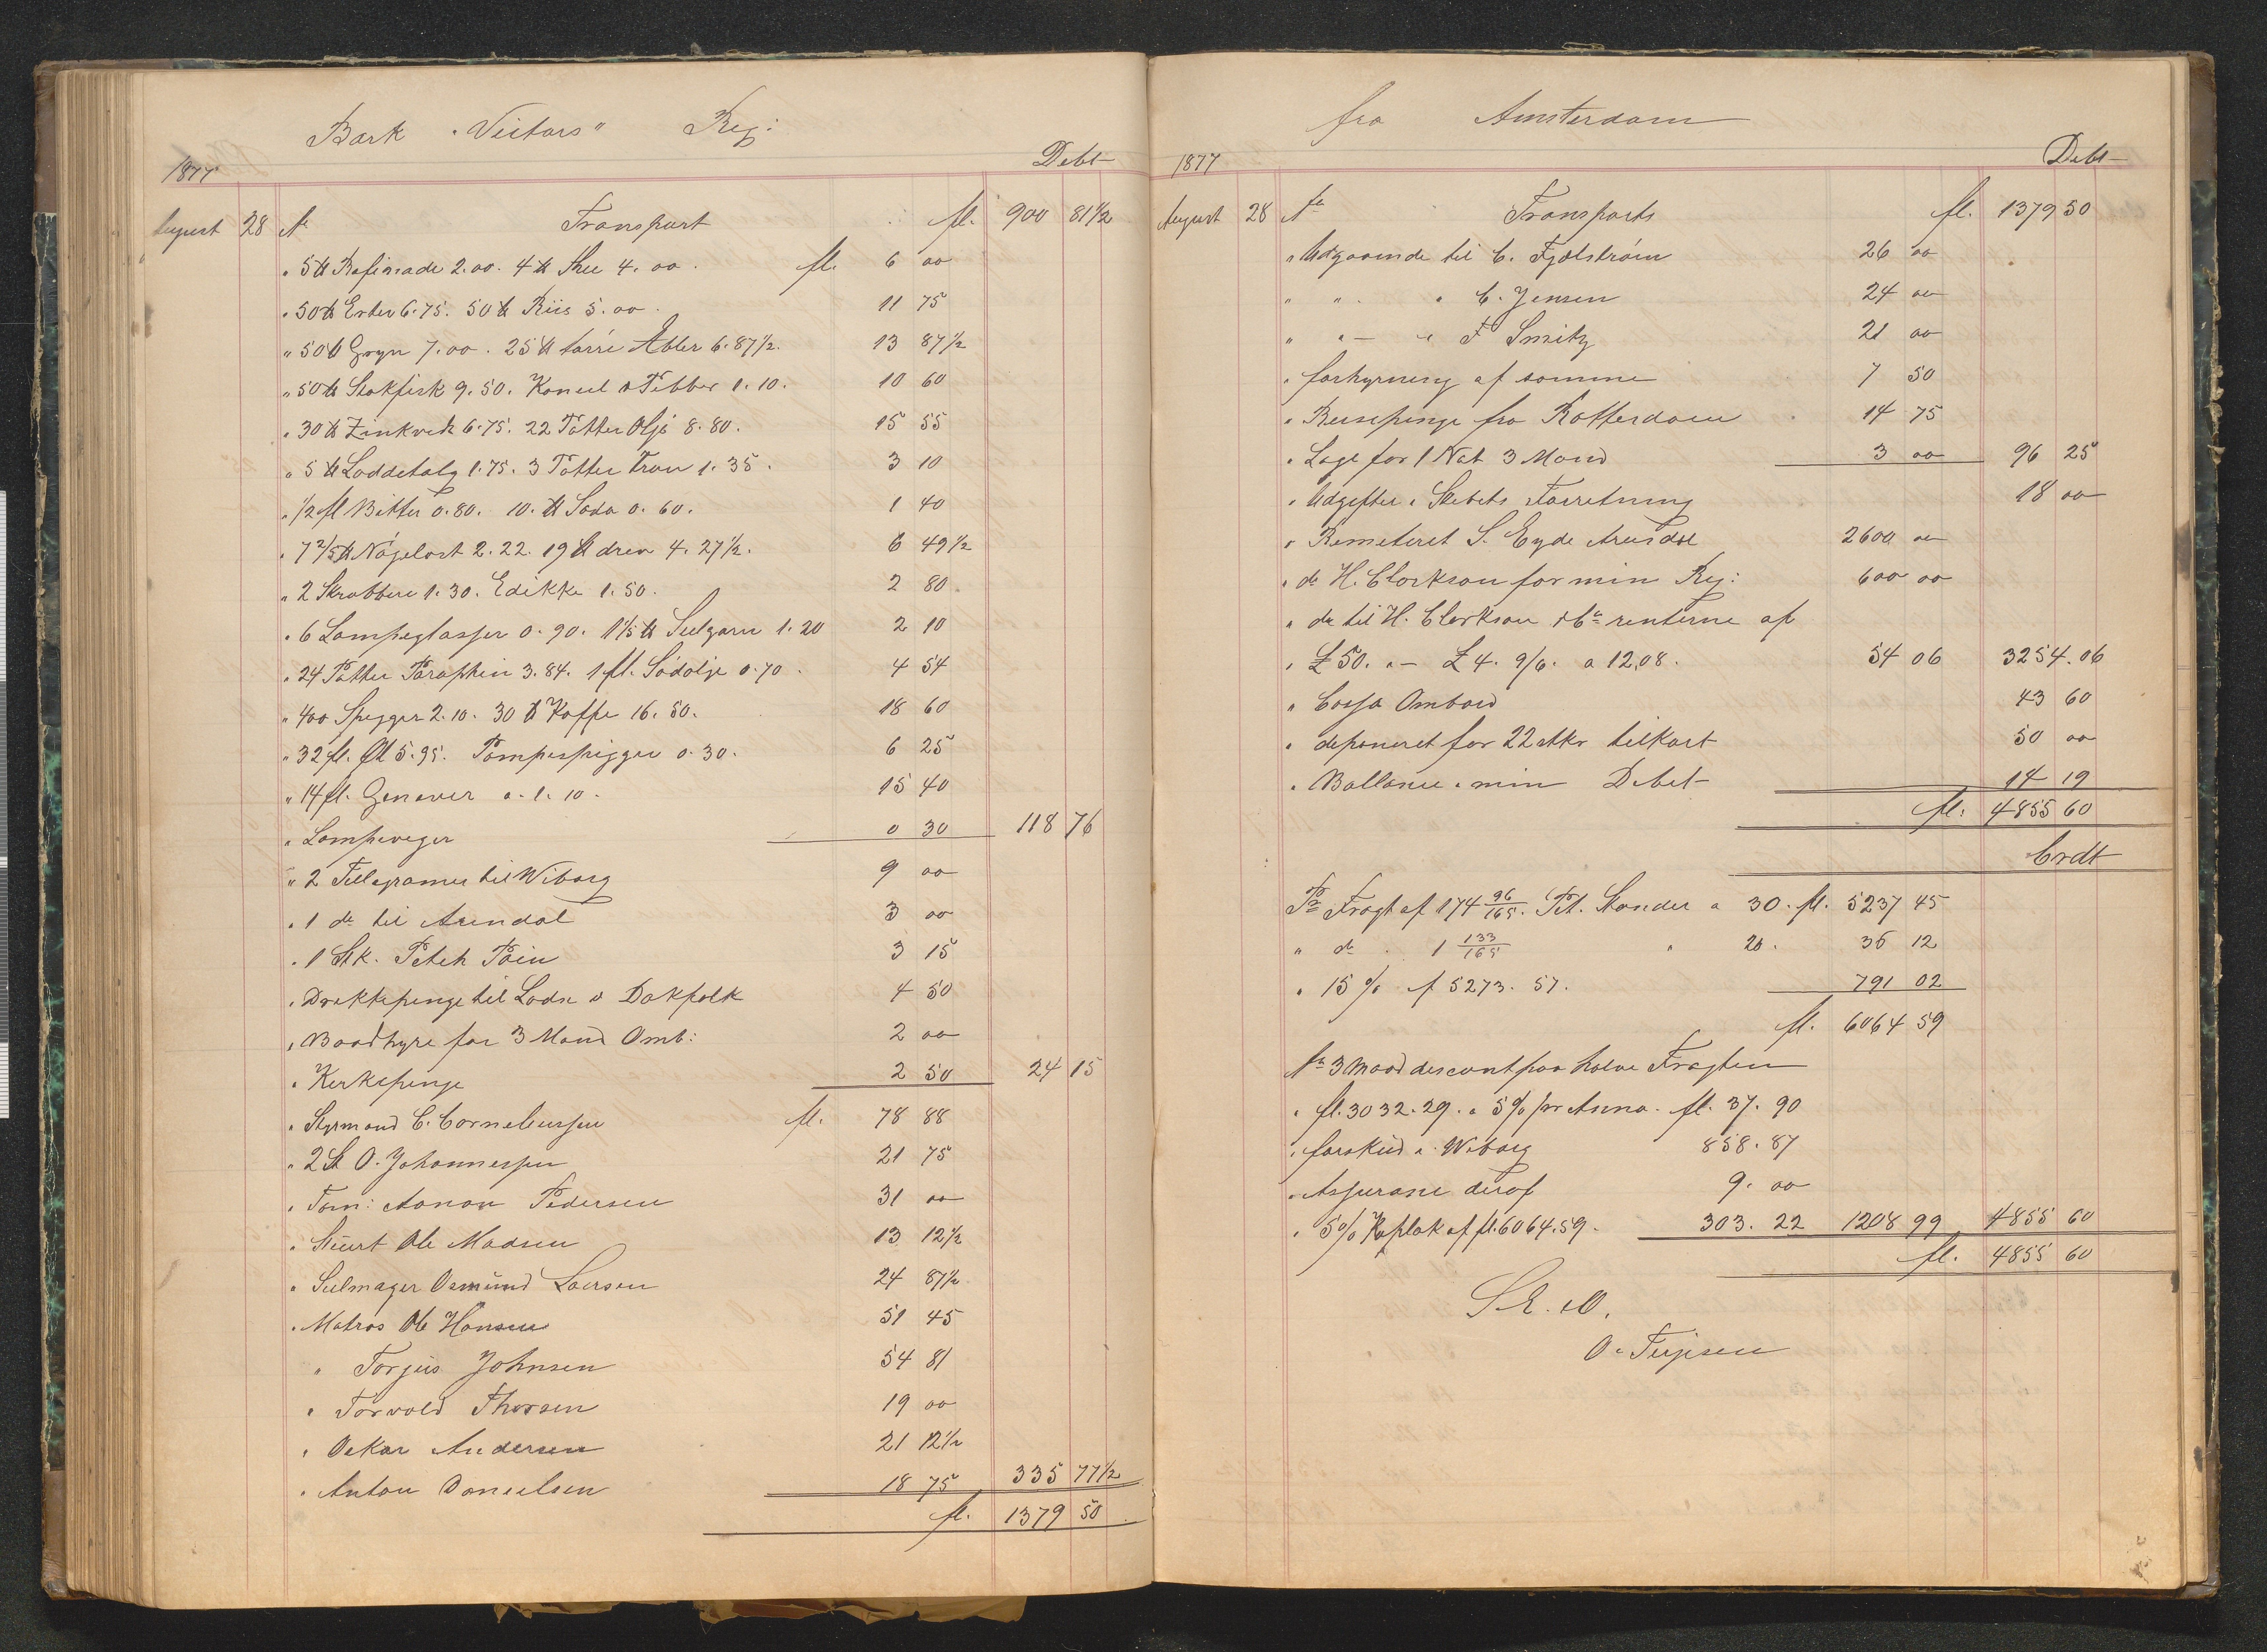 Bark "Victors" Reg:
1877 Debt
August 28 A Transport fl. 900 81½
" 5 ℔ Rafinade 2.00. 4 ℔ Thee 4.00. fl. 6 00
" 50 ℔ Erter 6.75. 50 ℔ Riis 5.00. 11 75
" 50 ℔ Gryn 7.00. 25 ℔ tørre Æbler 6.87½. 13 87½
" 50 ℔ Stokfisk 9.50. Kaneel & Pebber 1.10. 10 60
" 30 ℔ Zinkvidt 6.75. 22 Potter Olje 8.80. 15 55
" 5 ℔ Loddetalg 1.75. 3 Potter Tran 1.35. 3 10
" ½ fl Bitter 0.80. 10 ℔ Soda 0.60. 1 40
" 7 2/5 ℔ Nøgelost 2.22. 19 ℔ drev 4.27½. 6 49½
" 2 Skrubbere 1.30. Edikke 1.50. 2 80
" 6 Lampeglasser 0.90. 1 1/5 ℔ Seilgarn 1.20 2 10
" 24 Potter Paraphin 3.84. 1 fl. Sødolje 0.70. 4 54
" 400 Spigger 2.10. 30 ℔ Kaffe 16.50. 18 60
" 32 fl. Øl 5.95. Pompespigger 0.30. 6 25
" 14 fl. Genever a. 1.10. 15 40
" Lampeveger 0 30 118 76
" 2 Telegramer til Wiborg 9 00
" 1 do til Arendal 3 00
" 1 Stk. Pitch Pein 3 15
" Drikkepenge til Lods & Dokfolk 4 50
" Baadhyre for 3 Mand Omb: 2 00
" Kerkepenge 2 50 24 15
" Styrmand C. Corneliussen fl. 78 88
" 2 St O. Johannessen 21 75
" Tøm: Aanon Pedersen 31 00
" Stuert Ole Madsen 13 12½
" Seilmager Osmund Larsen 24 87½
" Matros Ole Hansen 51 45
" Torjus Johnsen 54 81
" Torvald Thorsen 19 00
" Oskar Andersen 21 12½
" Anton Danielsen 18 75 335 77½
fl. 1379 50
fra Amsterdam
1877 Debt
August 28 A Transports fl. 1379 50
" Udgaaende til C. Fjelstrøm 26 00
" " " C. Jensen 24 00
" " " F Smitz 21 00
" forhyrning af samme 7 50
" Reisepenge fra Rotterdam 14 75
" Loge for 1 Nat 3 Mand 3 00 96 25
" Udgifter i Skibets Forretning 18 00
" Remeteret S. Eyde Arendal 2600 00
" do H. Clarkson for min Reg: 600 00
" do til H. Clarkson & Co renterne af
" £ 50. " – £ 4. 9/6. a 12,08. 54 06 3254.06
" Cassa Ombord 43 60
" deponeret for 22 stkr tilkort 50 00
" Ballance i min Debet 14 19
fl. 4855 60
Crdt
Pr Fragt af 174 96/165. Pet. Stander a 30. fl. 5237 45
" do 1 133/165 " 20. 36 12
" 15 % af 5273.57. 791 02
fl. 6064 59
A 3 Maad discont paa halve Fragten
" fl. 3032.29. a 5% pr Anno. fl. 37.90
" forskud i Wiborg 858.87
" Assurane deraf 9.00
" 5% Kaplak af fl. 6064.59. 303.22 1208 99 4855 60
fl. 4855 60
S.E. &O.
O. Terjesen